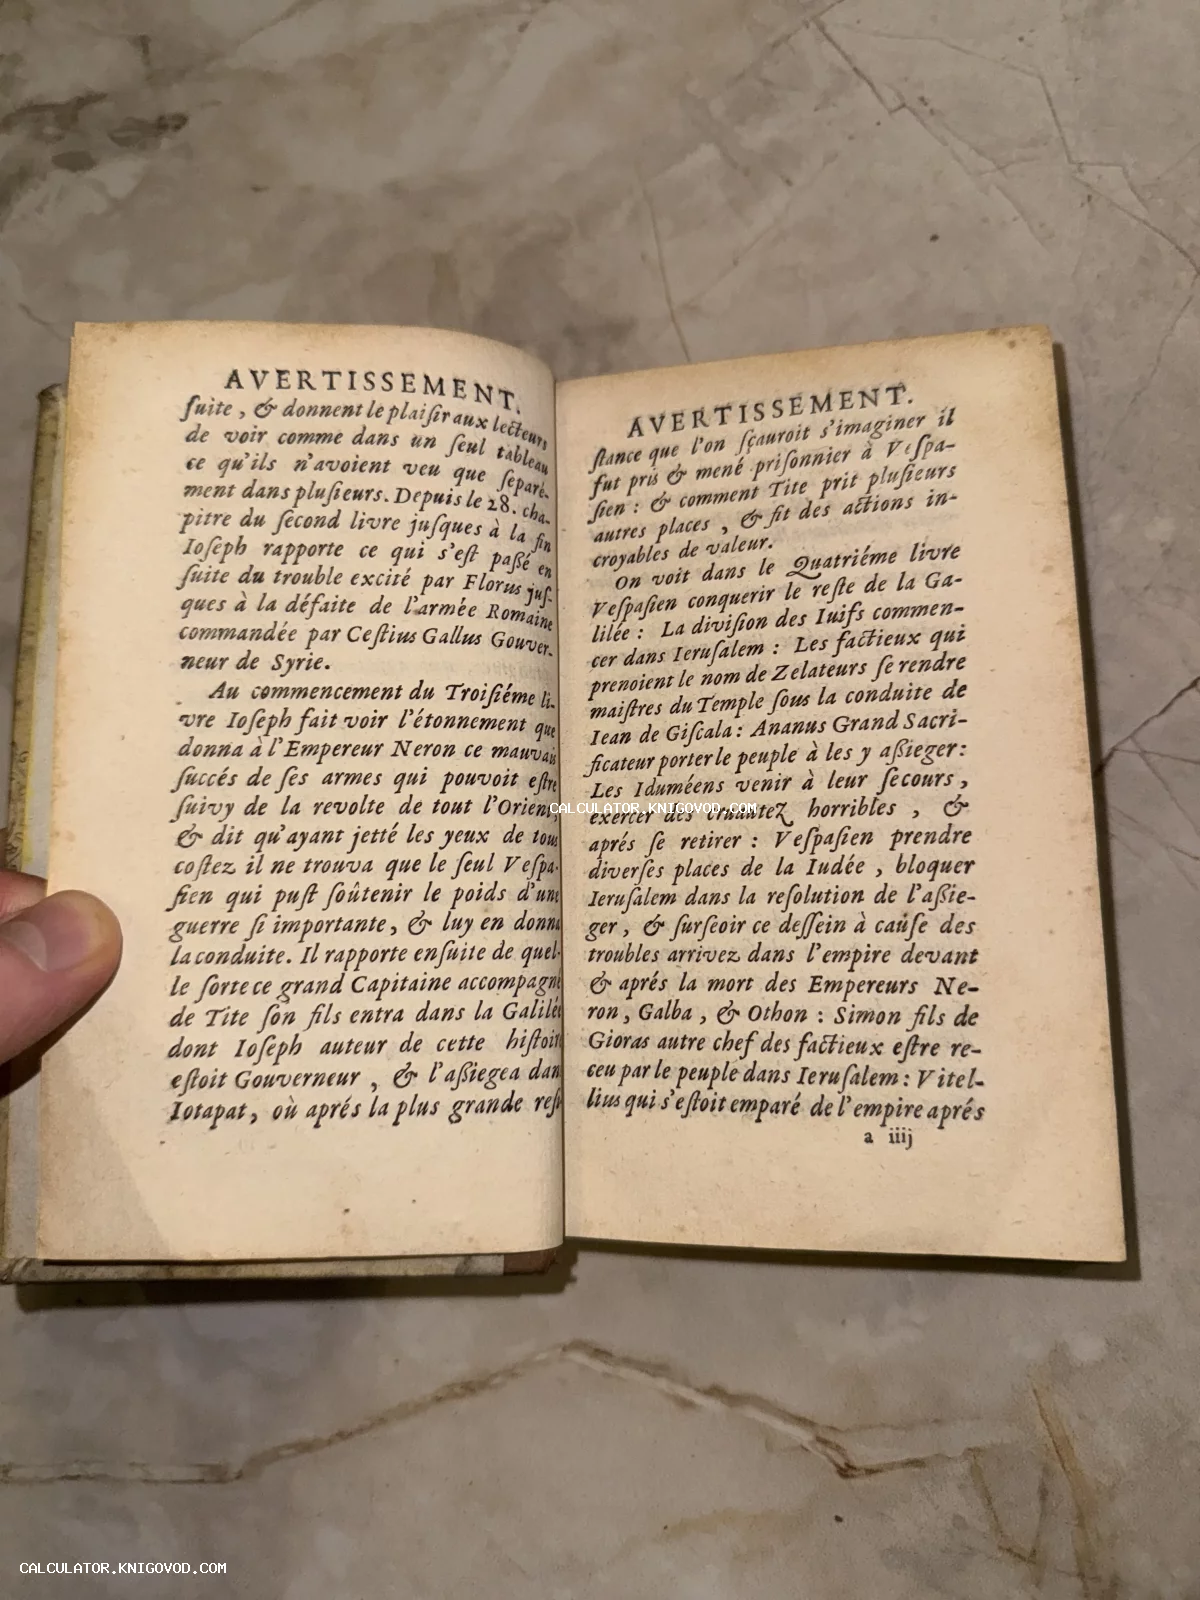 AVERTISSEMENT.
ſuite, & donnent le plaiſir aux lecteurs
de voir comme dans un ſeul tableau
ce qu'ils n'avoient veu que ſeparé-
ment dans pluſieurs. Depuis le 28. cha-
pitre du ſecond livre juſques à la fin
Ioſeph rapporte ce qui s'eſt paßé en
ſuite du trouble excité par Florus juſ-
ques à la défaite de l'armée Romaine
commandée par Ceſtius Gallus Gouver-
neur de Syrie.
Au commencement du Troiſiéme li-
vre Ioſeph fait voir l'étonnement que
donna à l'Empereur Neron ce mauvais
ſuccés de ſes armes qui pouvoit eſtre
ſuivy de la revolte de tout l'Orient,
& dit qu'ayant jetté les yeux de tous
coſtez il ne trouva que le ſeul Veſpa-
ſien qui puſt ſoûtenir le poids d'une
guerre ſi importante, & luy en donna
la conduite. Il rapporte enſuite de quel-
le ſorte ce grand Capitaine accompagné
de Tite ſon fils entra dans la Galilée
dont Ioſeph auteur de cette hiſtoire
eſtoit Gouverneur, & l'aßiegea dan
Iotapat, où aprés la plus grande reſi
AVERTISSEMENT.
ſtance que l'on ſçauroit s'imaginer il
fut pris & mené priſonnier à Veſpa-
ſien : & comment Tite prit pluſieurs
autres places, & fit des actions in-
croyables de valeur.
On voit dans le Quatriéme livre
Veſpaſien conquerir le reſte de la Ga-
lilée : La diviſion des Iuifs commen-
cer dans Ieruſalem : Les factieux qui
prenoient le nom de Zelateurs ſe rendre
maiſtres du Temple ſous la conduite de
Iean de Giſcala : Ananus Grand Sacri-
ficateur porter le peuple à les y aßieger :
Les Iduméens venir à leur ſecours,
exercer des cruautez horribles, &
aprés ſe retirer : Veſpaſien prendre
diverſes places de la Iudée, bloquer
Ieruſalem dans la reſolution de l'aßie-
ger, & ſurſeoir ce deſſein à cauſe des
troubles arrivez dans l'empire devant
& aprés la mort des Empereurs Ne-
ron, Galba, & Othon : Simon fils de
Gioras autre chef des factieux eſtre re-
ceu par le peuple dans Ieruſalem : Vitel-
lius qui s'eſtoit emparé de l'empire aprés
a iiij
CALCULATOR.KNIGOVOD.COM
CALCULATOR.KNIGOVOD.COM